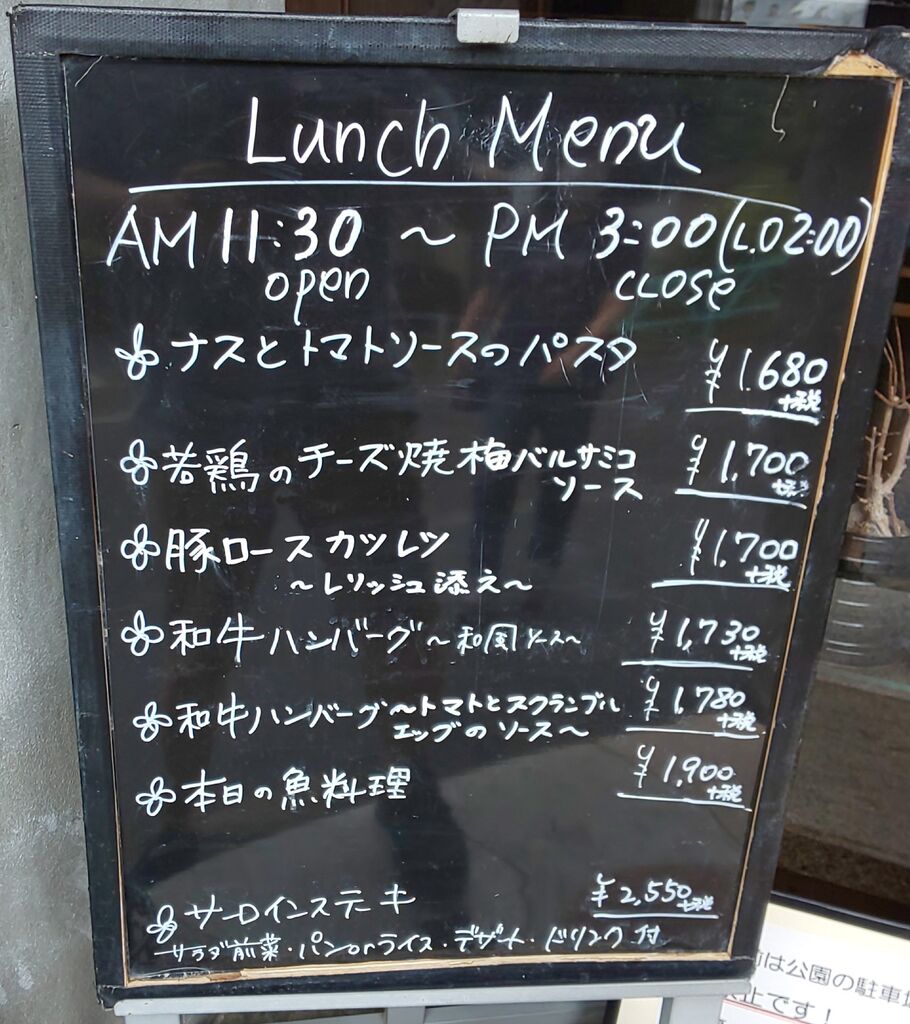 Lunch Menu
AM 11:30 ~ PM 3:00 (L.O 2:00)
open CLOSE
ナスとトマトソースのパスタ ¥1.680
+税
若鶏のチーズ焼 梅バルサミコ ¥1,700
ソース +税
豚ロースカツレツ ¥1,700
~レリッシュ添え~ +税
和牛ハンバーグ ~和風ソース~ ¥1,730
+税
和牛ハンバーグ ~トマトとスクランブル ¥1,780
エッグのソース~ +税
本日の魚料理 ¥1,900
+税
サーロインステーキ ¥2,550
+税
サラダ前菜・パンorライス・デザート・ドリンク付
前は公園の駐車場
止です!